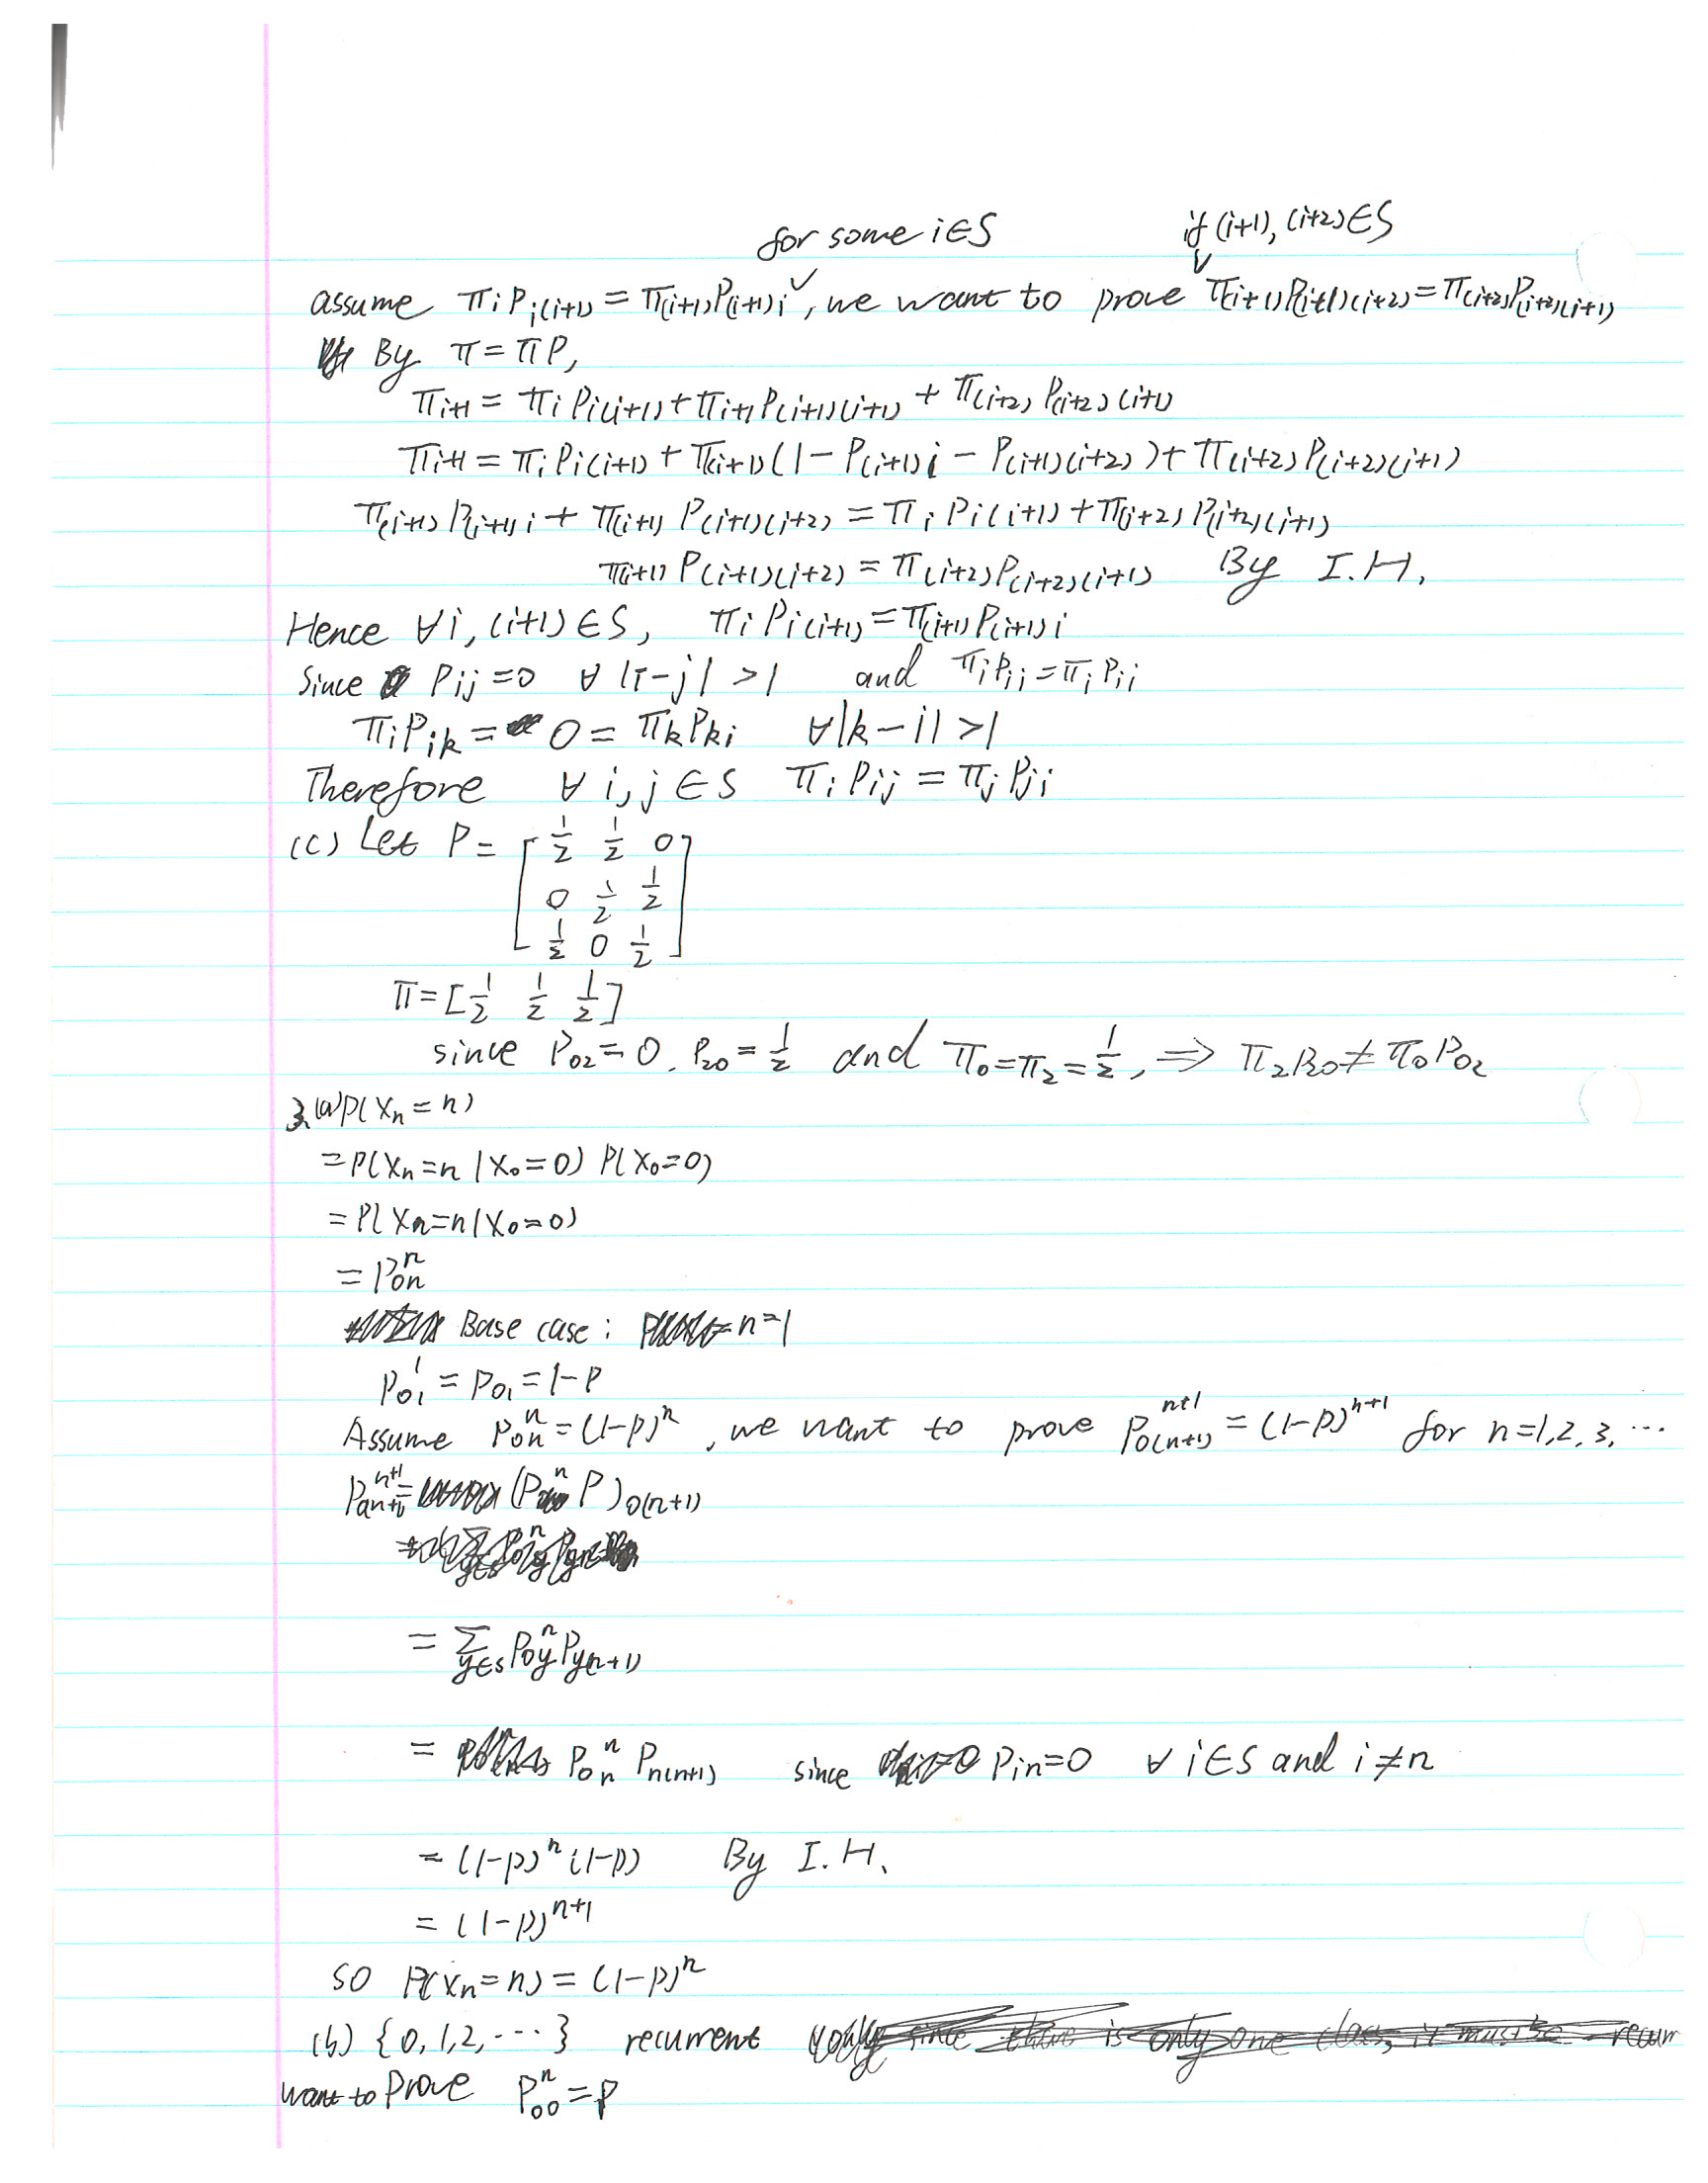 for some i∈S if (i+1), (i+2)∈S
assume π_i P_{i(i+1)} = π_{(i+1)} P_{(i+1)i} ∨, we want to prove ∨ π_{(i+1)} P_{(i+1)(i+2)} = π_{(i+2)} P_{(i+2)(i+1)}
By π = πP,
π_{i+1} = π_i P_{i(i+1)} + π_{i+1} P_{(i+1)(i+1)} + π_{(i+2)} P_{(i+2)(i+1)}
π_{i+1} = π_i P_{i(i+1)} + π_{(i+1)} (1 - P_{(i+1)i} - P_{(i+1)(i+2)}) + π_{(i+2)} P_{(i+2)(i+1)}
π_{(i+1)} P_{(i+1)i} + π_{(i+1)} P_{(i+1)(i+2)} = π_i P_{i(i+1)} + π_{(i+2)} P_{(i+2)(i+1)}
π_{(i+1)} P_{(i+1)(i+2)} = π_{(i+2)} P_{(i+2)(i+1)} By I.H.
Hence ∀i, (i+1) ∈ S, π_i P_{i(i+1)} = π_{(i+1)} P_{(i+1)i}
Since P_{ij} = 0 ∀ |i-j| > 1 and π_i P_{ii} = π_i P_{ii}
π_i P_{ik} = 0 = π_k P_{ki} ∀|k-i| > 1
Therefore ∀ i, j ∈ S π_i P_{ij} = π_j P_{ji}
(c) Let P = [ 1/2 1/2 0 ]
0 1/2 1/2
1/2 0 1/2
π = [1/2 1/2 1/2]
since P_{02} = 0, P_{20} = 1/2 and π_0 = π_2 = 1/2, ⇒ π_2 P_{20} ≠ π_0 P_{02}
3.(a) P(X_n = n)
= P(X_n = n | X_0 = 0) P(X_0 = 0)
= P(X_n = n | X_0 = 0)
= P_{0n}^n
Base case: n = 1
P_{01}^1 = P_{01} = 1-p
Assume P_{0n}^n = (1-p)^n, we want to prove P_{0(n+1)}^{n+1} = (1-p)^{n+1} for n = 1, 2, 3, ...
P_{0(n+1)}^{n+1} = (P^n P)_{0(n+1)}
= Σ_{y∈S} P_{0y}^n P_{y(n+1)}
= P_{0n}^n P_{n(n+1)} since P_{in} = 0 ∀ i ∈ S and i ≠ n
= (1-p)^n (1-p) By I.H.
= (1-p)^{n+1}
so P(X_n = n) = (1-p)^n
(b) {0, 1, 2, ...} recurrent since there is only one class, it must be recurr
want to prove P_{00}^n = p